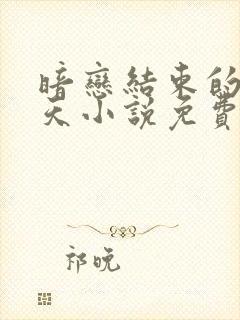 暗戀結束的
天小說免費
祁晚